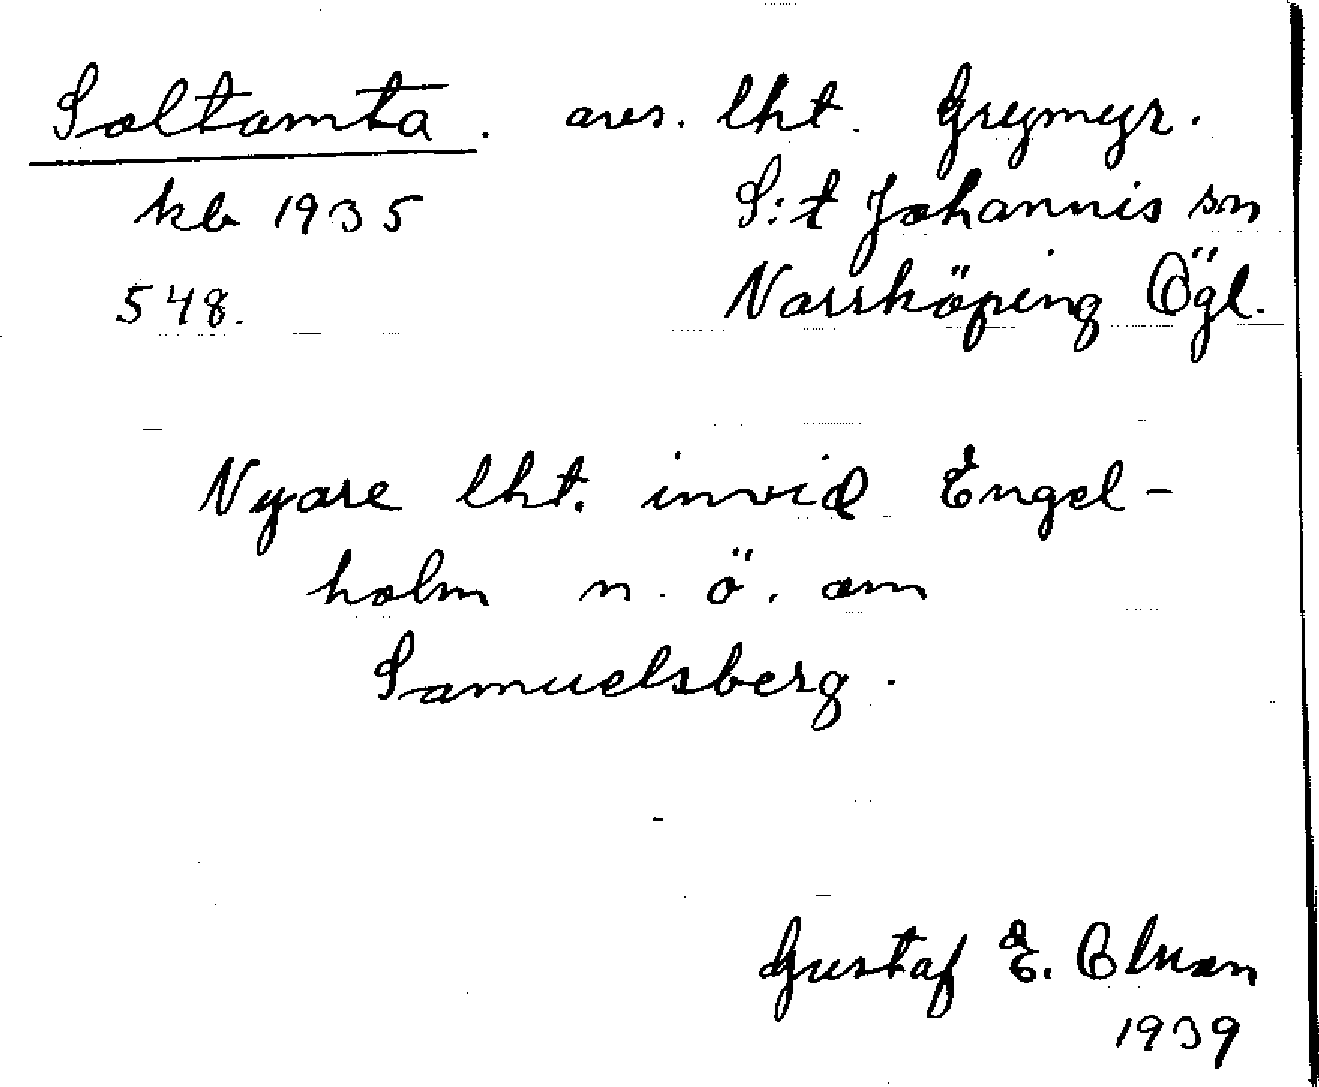 Soltomta. avs. lht. Grymyr.
kb 1935 S:t Johannis sn
548. Norrköping Ögl.
Nyare lht. invid Engel-
holm n. ö. om
Samuelsberg.
Gustaf E.
1939